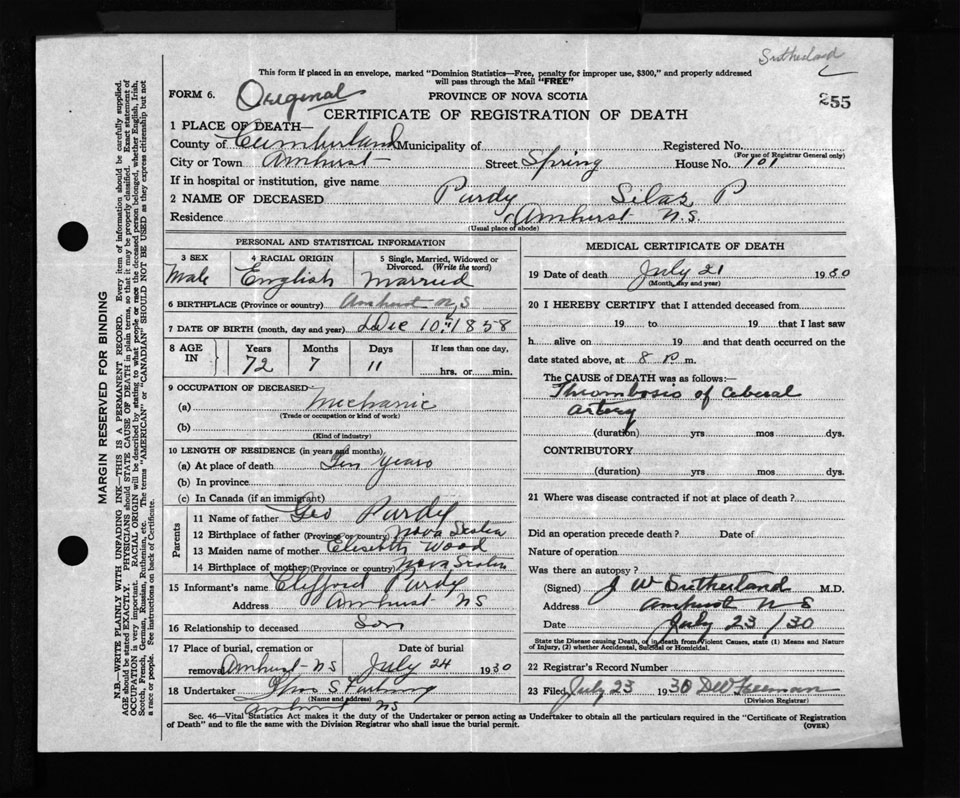 Sutherland
This form if placed in an envelope, marked "Dominion Statistics—Free, penalty for improper use, $300," and properly addressed
will pass through the Mail "FREE"
FORM 6. Original PROVINCE OF NOVA SCOTIA
255
CERTIFICATE OF REGISTRATION OF DEATH
1 PLACE OF DEATH—
County of Cumberland Municipality of Registered No.
(For use of Registrar General only)
City or Town Amherst Street Spring House No. 101
If in hospital or institution, give name
2 NAME OF DECEASED Purdy Silas P
Residence Amherst N.S.
(Usual place of abode)
PERSONAL AND STATISTICAL INFORMATION
3 SEX 4 RACIAL ORIGIN 5 Single, Married, Widowed or
Divorced. (Write the word)
Male English Married
6 BIRTHPLACE (Province or country) Amherst N S
7 DATE OF BIRTH (month, day and year) Dec 10 1858
8 AGE IN Years Months Days If less than one day,
72 7 11 hrs. or min.
9 OCCUPATION OF DECEASED
(a) Mechanic
(Trade or occupation or kind of work)
(b)
(Kind of industry)
10 LENGTH OF RESIDENCE (in years and months)
(a) At place of death Ten years
(b) In province
(c) In Canada (if an immigrant)
Parents
11 Name of father Geo Purdy
12 Birthplace of father (Province or country) Nova Scotia
13 Maiden name of mother Elisebth Wood
14 Birthplace of mother (Province or country) Nova Scotia
15 Informant's name Clifford Purdy
Address Amherst NS
16 Relationship to deceased Son
17 Place of burial, cremation or Date of burial
removal Amherst NS July 24 1930
18 Undertaker
(Name and address)
Amherst NS
MEDICAL CERTIFICATE OF DEATH
19 Date of death July 21 1930
(Month, day and year)
20 I HEREBY CERTIFY that I attended deceased from
19 to 19 that I last saw
h alive on 19 and that death occurred on the
date stated above, at 8 P m.
The CAUSE of DEATH was as follows:—
Thrombosis of Ceberal
artery
(duration) yrs mos dys.
CONTRIBUTORY
(duration) yrs mos dys.
21 Where was disease contracted if not at place of death?
Did an operation precede death? Date of
Nature of operation
Was there an autopsy?
(Signed) J W Sutherland M.D.
Address Amherst N S
Date July 23/30
State the Disease causing Death, or in death from Violent Causes, state (1) Means and Nature
of Injury, (2) whether Accidental, Suicidal or Homicidal.
22 Registrar's Record Number
23 Filed July 23 1930 D W Freeman
(Division Registrar)
Sec. 46—Vital Statistics Act makes it the duty of the Undertaker or person acting as Undertaker to obtain all the particulars required in the "Certificate of Registration
of Death" and to file the same with the Division Registrar who shall issue the burial permit.
(OVER)
MARGIN RESERVED FOR BINDING
N.B.—WRITE PLAINLY WITH UNFADING INK—THIS IS A PERMANENT RECORD. Every item of information should be carefully supplied.
AGE should be stated EXACTLY. PHYSICIANS should STATE CAUSE OF DEATH in plain terms, so that it may be properly classified. Exact statement of
OCCUPATION is very important. RACIAL ORIGIN will be described by stating to what people or race the deceased person belonged, whether English, Irish,
Scotch, French, German, Russian, Ruthenian, etc. The terms "AMERICAN" or "CANADIAN" SHOULD NOT BE USED as they express citizenship but not
a race or people. See instructions on back of Certificate.